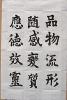 品物流形
随感變質
應德效靈